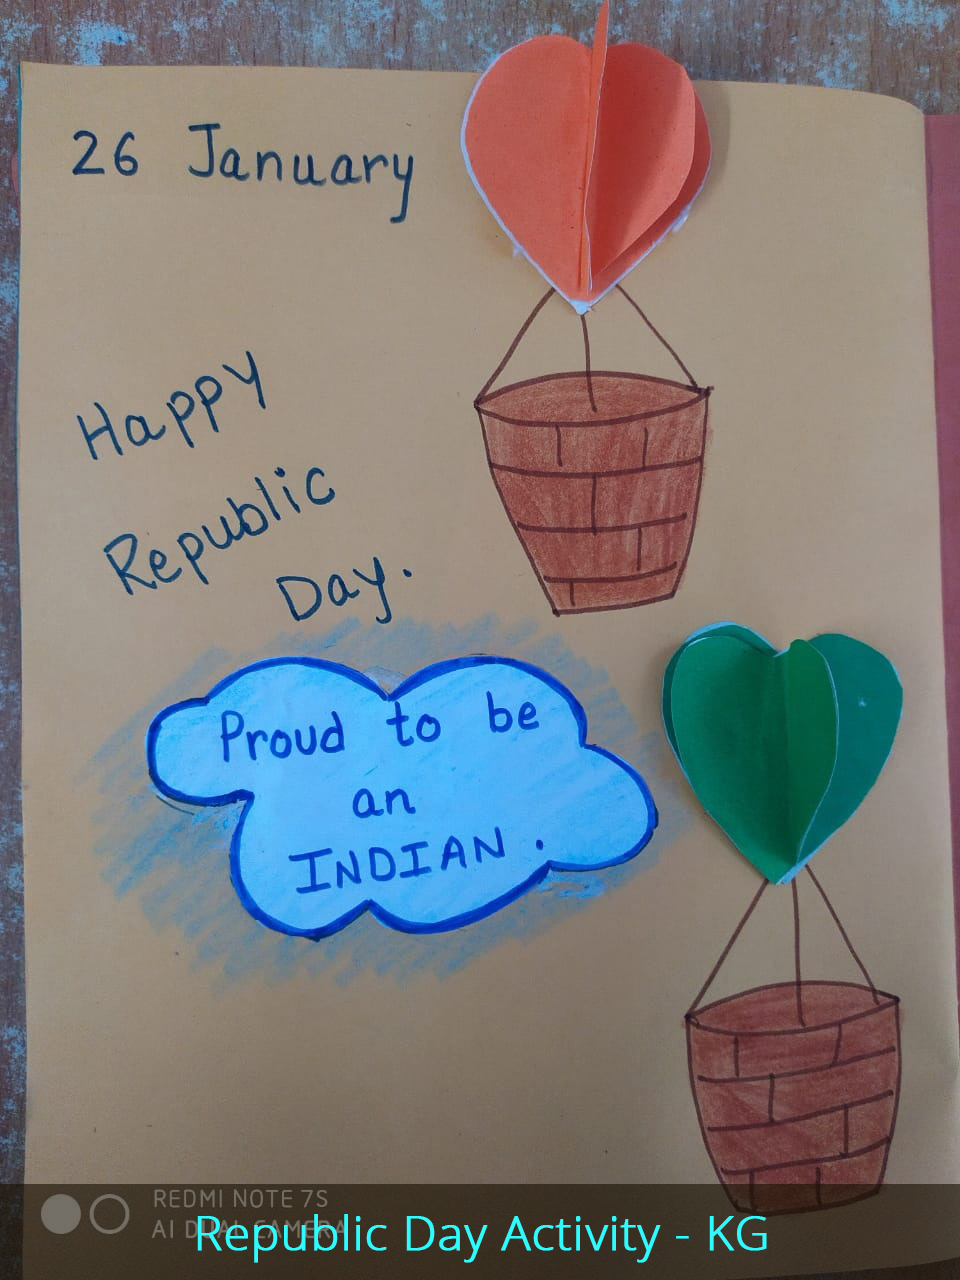 26 January
Happy
Republic
Day.
Proud to be
an
INDIAN.
REDMI NOTE 7S
AI DUAL CAMERA
Republic Day Activity - KG